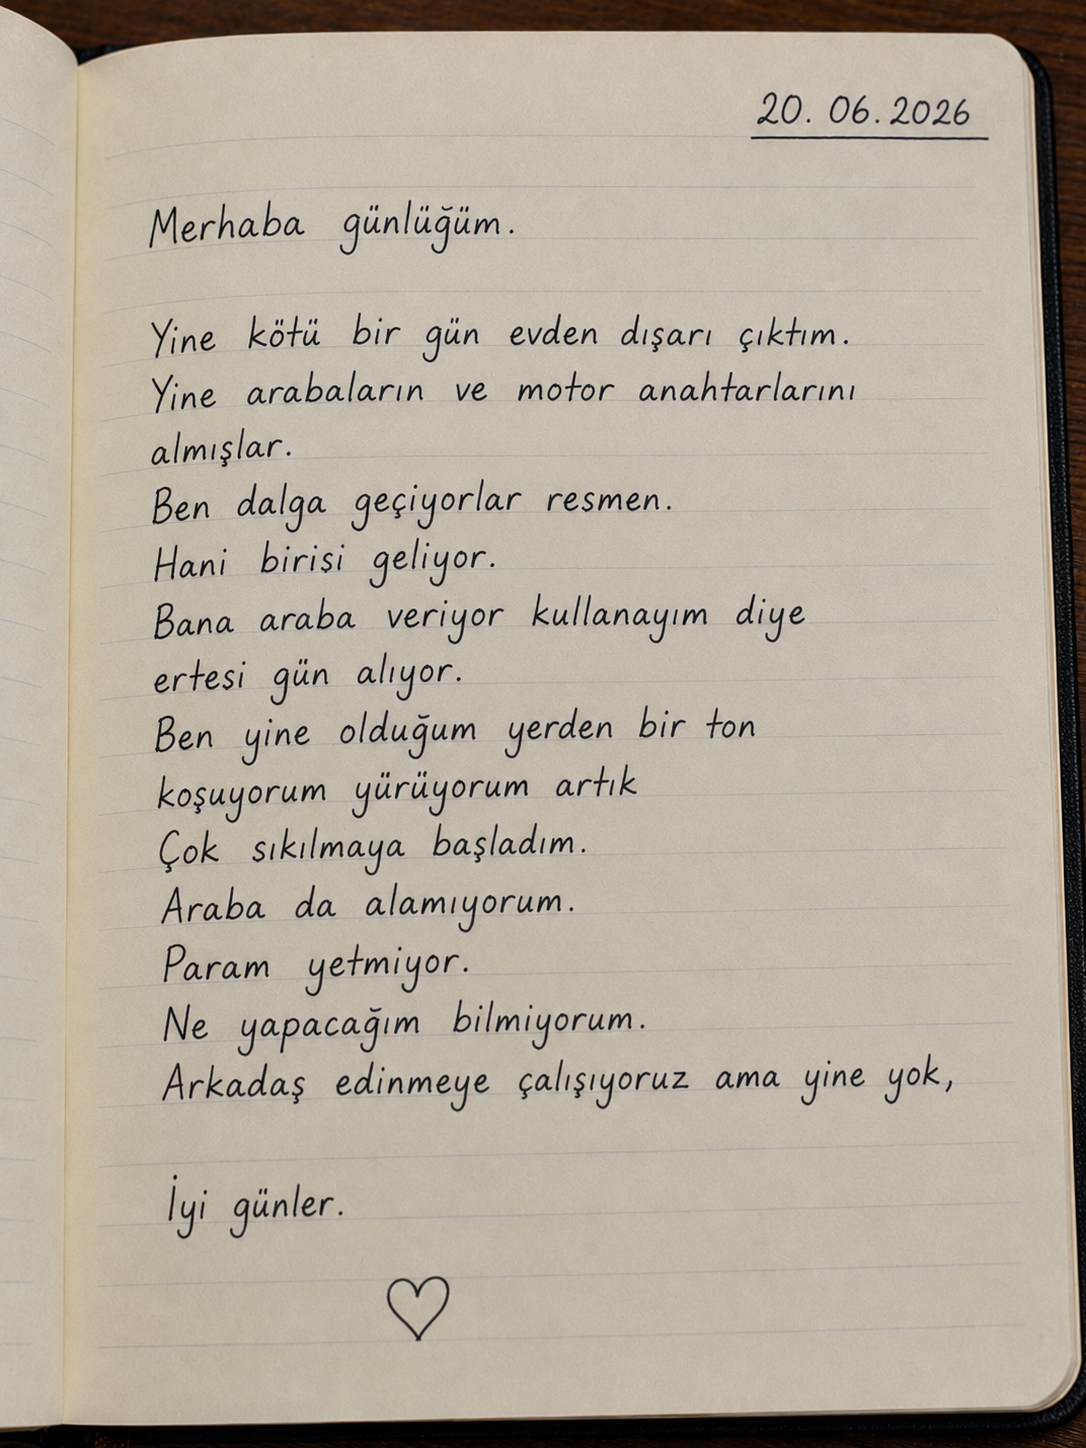 20. 06. 2026
Merhaba günlüğüm.
Yine kötü bir gün evden dışarı çıktım.
Yine arabaların ve motor anahtarlarını
almışlar.
Ben dalga geçiyorlar resmen.
Hani birisi geliyor.
Bana araba veriyor kullanayım diye
ertesi gün alıyor.
Ben yine olduğum yerden bir ton
koşuyorum yürüyorum artık
Çok sıkılmaya başladım.
Araba da alamıyorum.
Param yetmiyor.
Ne yapacağım bilmiyorum.
Arkadaş edinmeye çalışıyoruz ama yine yok,
İyi günler.